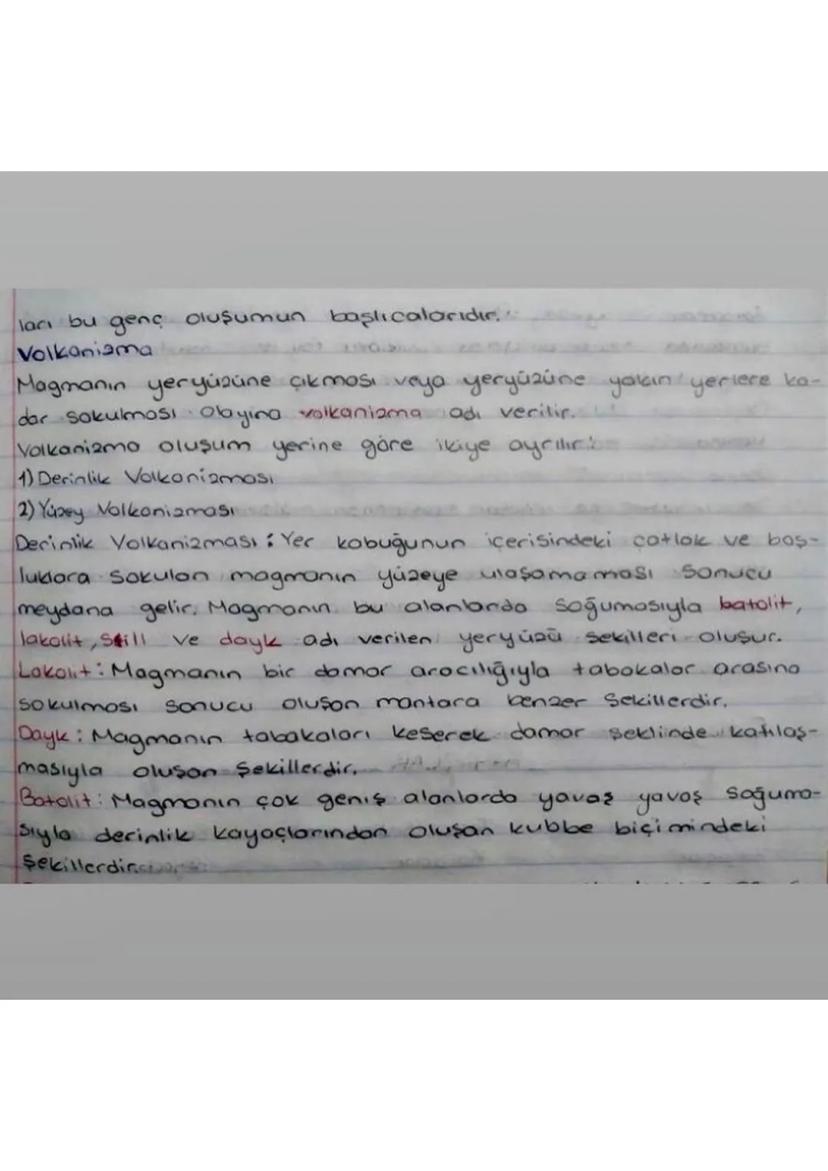 ları bu genç oluşumun başlıcalarıdır.
Volkanizma
Magmanın yeryüzüne çıkması veya yeryüzüne yakın yerlere ka-
dar sokulması olayına volkanizma adı verilir.
Volkanizma oluşum yerine göre ikiye ayrılır:
1) Derinlik Volkanizması
2) Yüzey Volkanizması
Derinlik Volkanizması: Yer kabuğunun içerisindeki çatlak ve boş-
luklara sokulan magmanın yüzeye ulaşamaması sonucu
meydana gelir. Magmanın bu alanlarda soğumasıyla batolit,
lakolit, sill ve dayk adı verilen yeryüzü şekilleri oluşur.
Lakolit: Magmanın bir damar aracılığıyla tabakalar arasına
sokulması sonucu oluşan mantara benzer şekillerdir.
Dayk: Magmanın tabakaları keserek damar şeklinde katılaş-
masıyla oluşan şekillerdir.
Batolit: Magmanın çok geniş alanlarda yavaş yavaş soğuma-
sıyla derinlik kayaçlarından oluşan kubbe biçimindeki
şekillerdir.